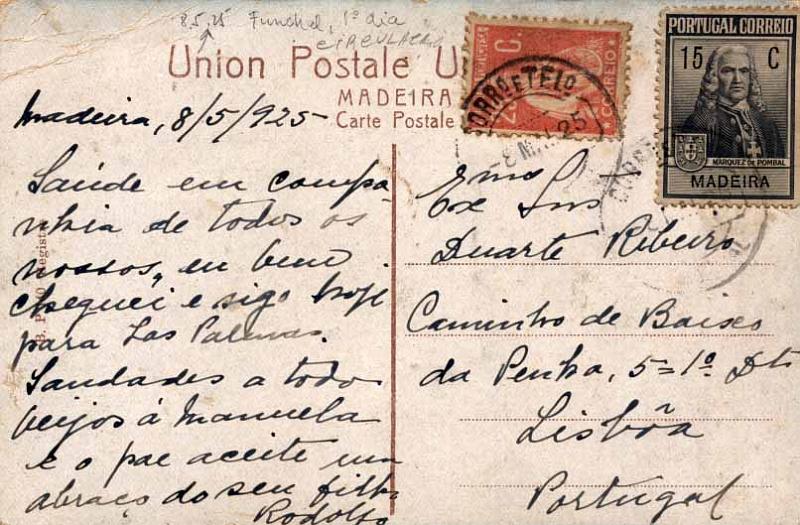 8.5.25 Funchal, 1º dia
CIRCULAÇÃO
Union Postale U
MADEIRA
Carte Postale
CORREIO
PORTUGAL CORREIO
15 C
MARQUEZ DE POMBAL
MADEIRA
CORREIO E TELO
8 MAI 25
Madeira, 8/5/925
Saúde em compa-
nhia de todos os
nossos, eu bem
cheguei e sigo hoje
para Las Palmas.
Saudades a todos
beijos á Manuela
e o pae aceite um
abraço do seu filho
Rodolfo
Exmo Snr
Duarte Ribeiro
Caminho de Baixo
da Penha, 5=1º Dto
Lisbôa
Portugal